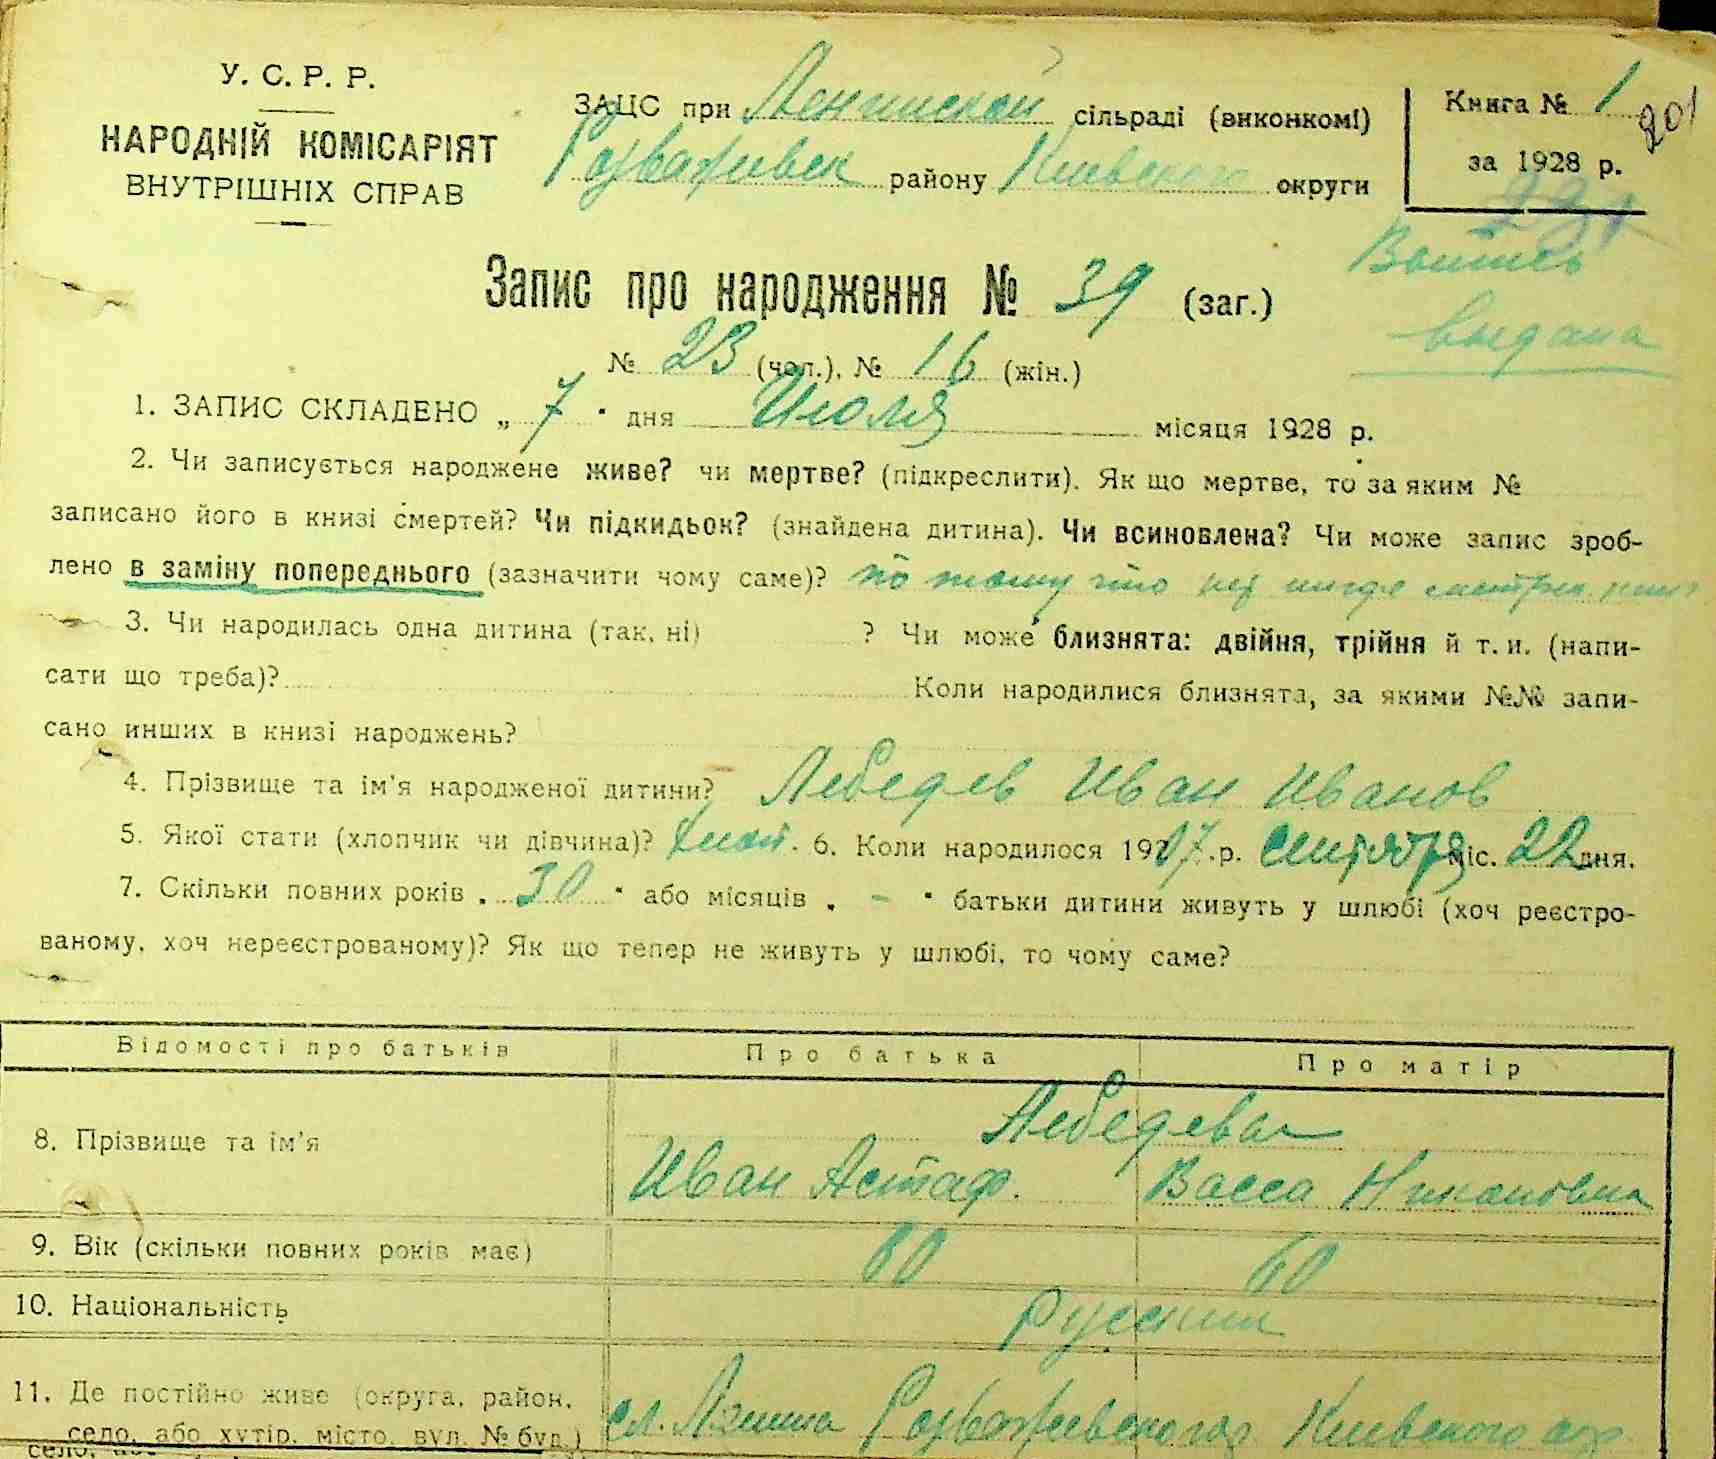 У. С. Р. Р.
НАРОДНІЙ КОМІСАРІЯТ
ВНУТРІШНІХ СПРАВ
ЗАЦС при Ленинской сільраді (виконкомі)
Розважевск району Киевского округи
Книга № 1
201
за 1928 р.
Выпись
выдана
Запис про народження № 39 (заг.)
№ 23 (чол.), № 16 (жін.)
1. ЗАПИС СКЛАДЕНО „ 7 " дня Июля місяця 1928 р.
2. Чи записується народжене живе? чи мертве? (підкреслити). Як що мертве, то за яким №
записано його в книзі смертей? Чи підкидьок? (знайдена дитина). Чи всиновлена? Чи може запис зроб-
лено в заміну попереднього (зазначити чому саме)? по тому что нет нигде
3. Чи народилась одна дитина (так, ні) ? Чи може близнята: двійня, трійня й т. и. (напи-
сати що треба)? Коли народилися близнята, за якими №№ запи-
сано инших в книзі народжень?
4. Прізвище та ім'я народженої дитини? Лебедев Иван Иванов
5. Якої стати (хлопчик чи дівчина)? 6. Коли народилося 1907 р. Сентября міс. 22 дня.
7. Скільки повних років „ 30 " або місяців „ - " батьки дитини живуть у шлюбі (хоч реєстро-
ваному, хоч нереєстрованому)? Як що тепер не живуть у шлюбі, то чому саме?
Відомості про батьків Про батька Про матір
Лебедева
8. Прізвище та ім'я Иван Астаф. Васса Никоновна
9. Вік (скільки повних років має) 60 60
10. Національність Русский
11. Де постійно живе (округа, район, сл. Ленина Розважевского Киевского окр
село, або хутір, місто, вул. № буд.)